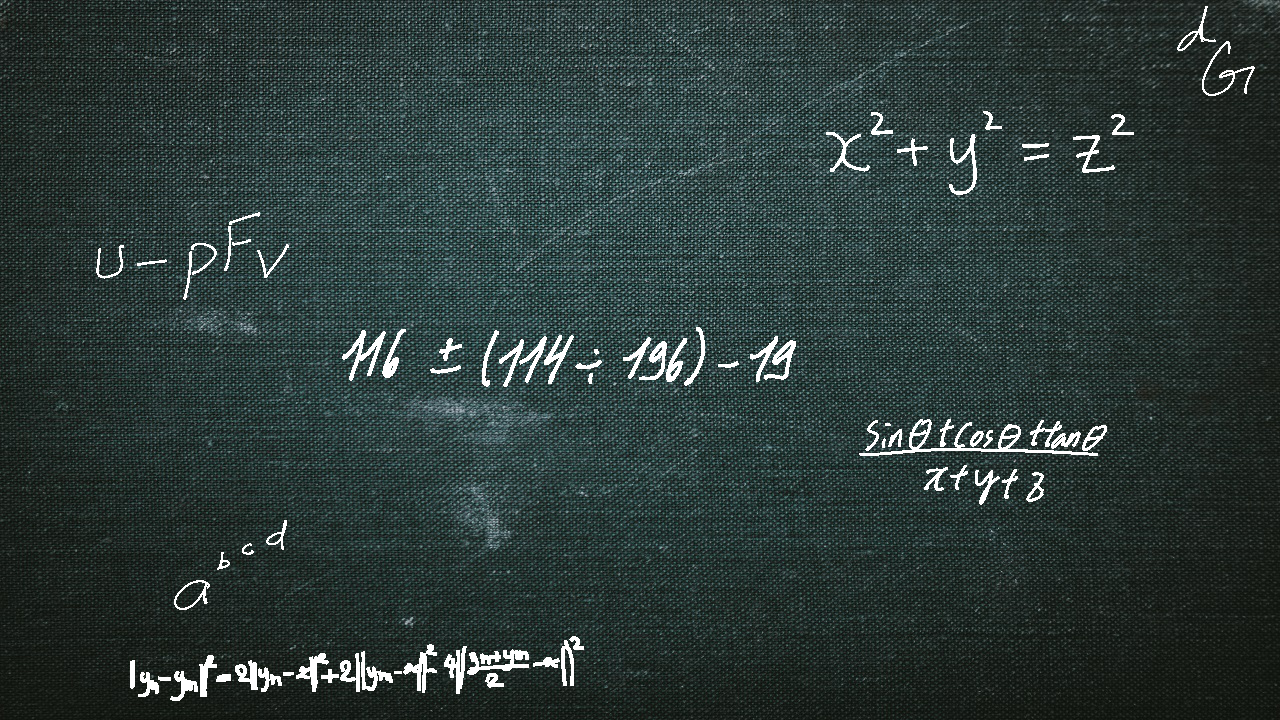 ᵈG
x² + y² = z²
u - pFv
116 ± (114 ÷ 196) - 19
sinθ + cosθ + tanθ
x + y + z
a^b^c^d
|yₙ - yₘ|² = 2|yₙ - x|² + 2|yₘ - x|² - 4|(yₙ + yₘ)/2 - x|²